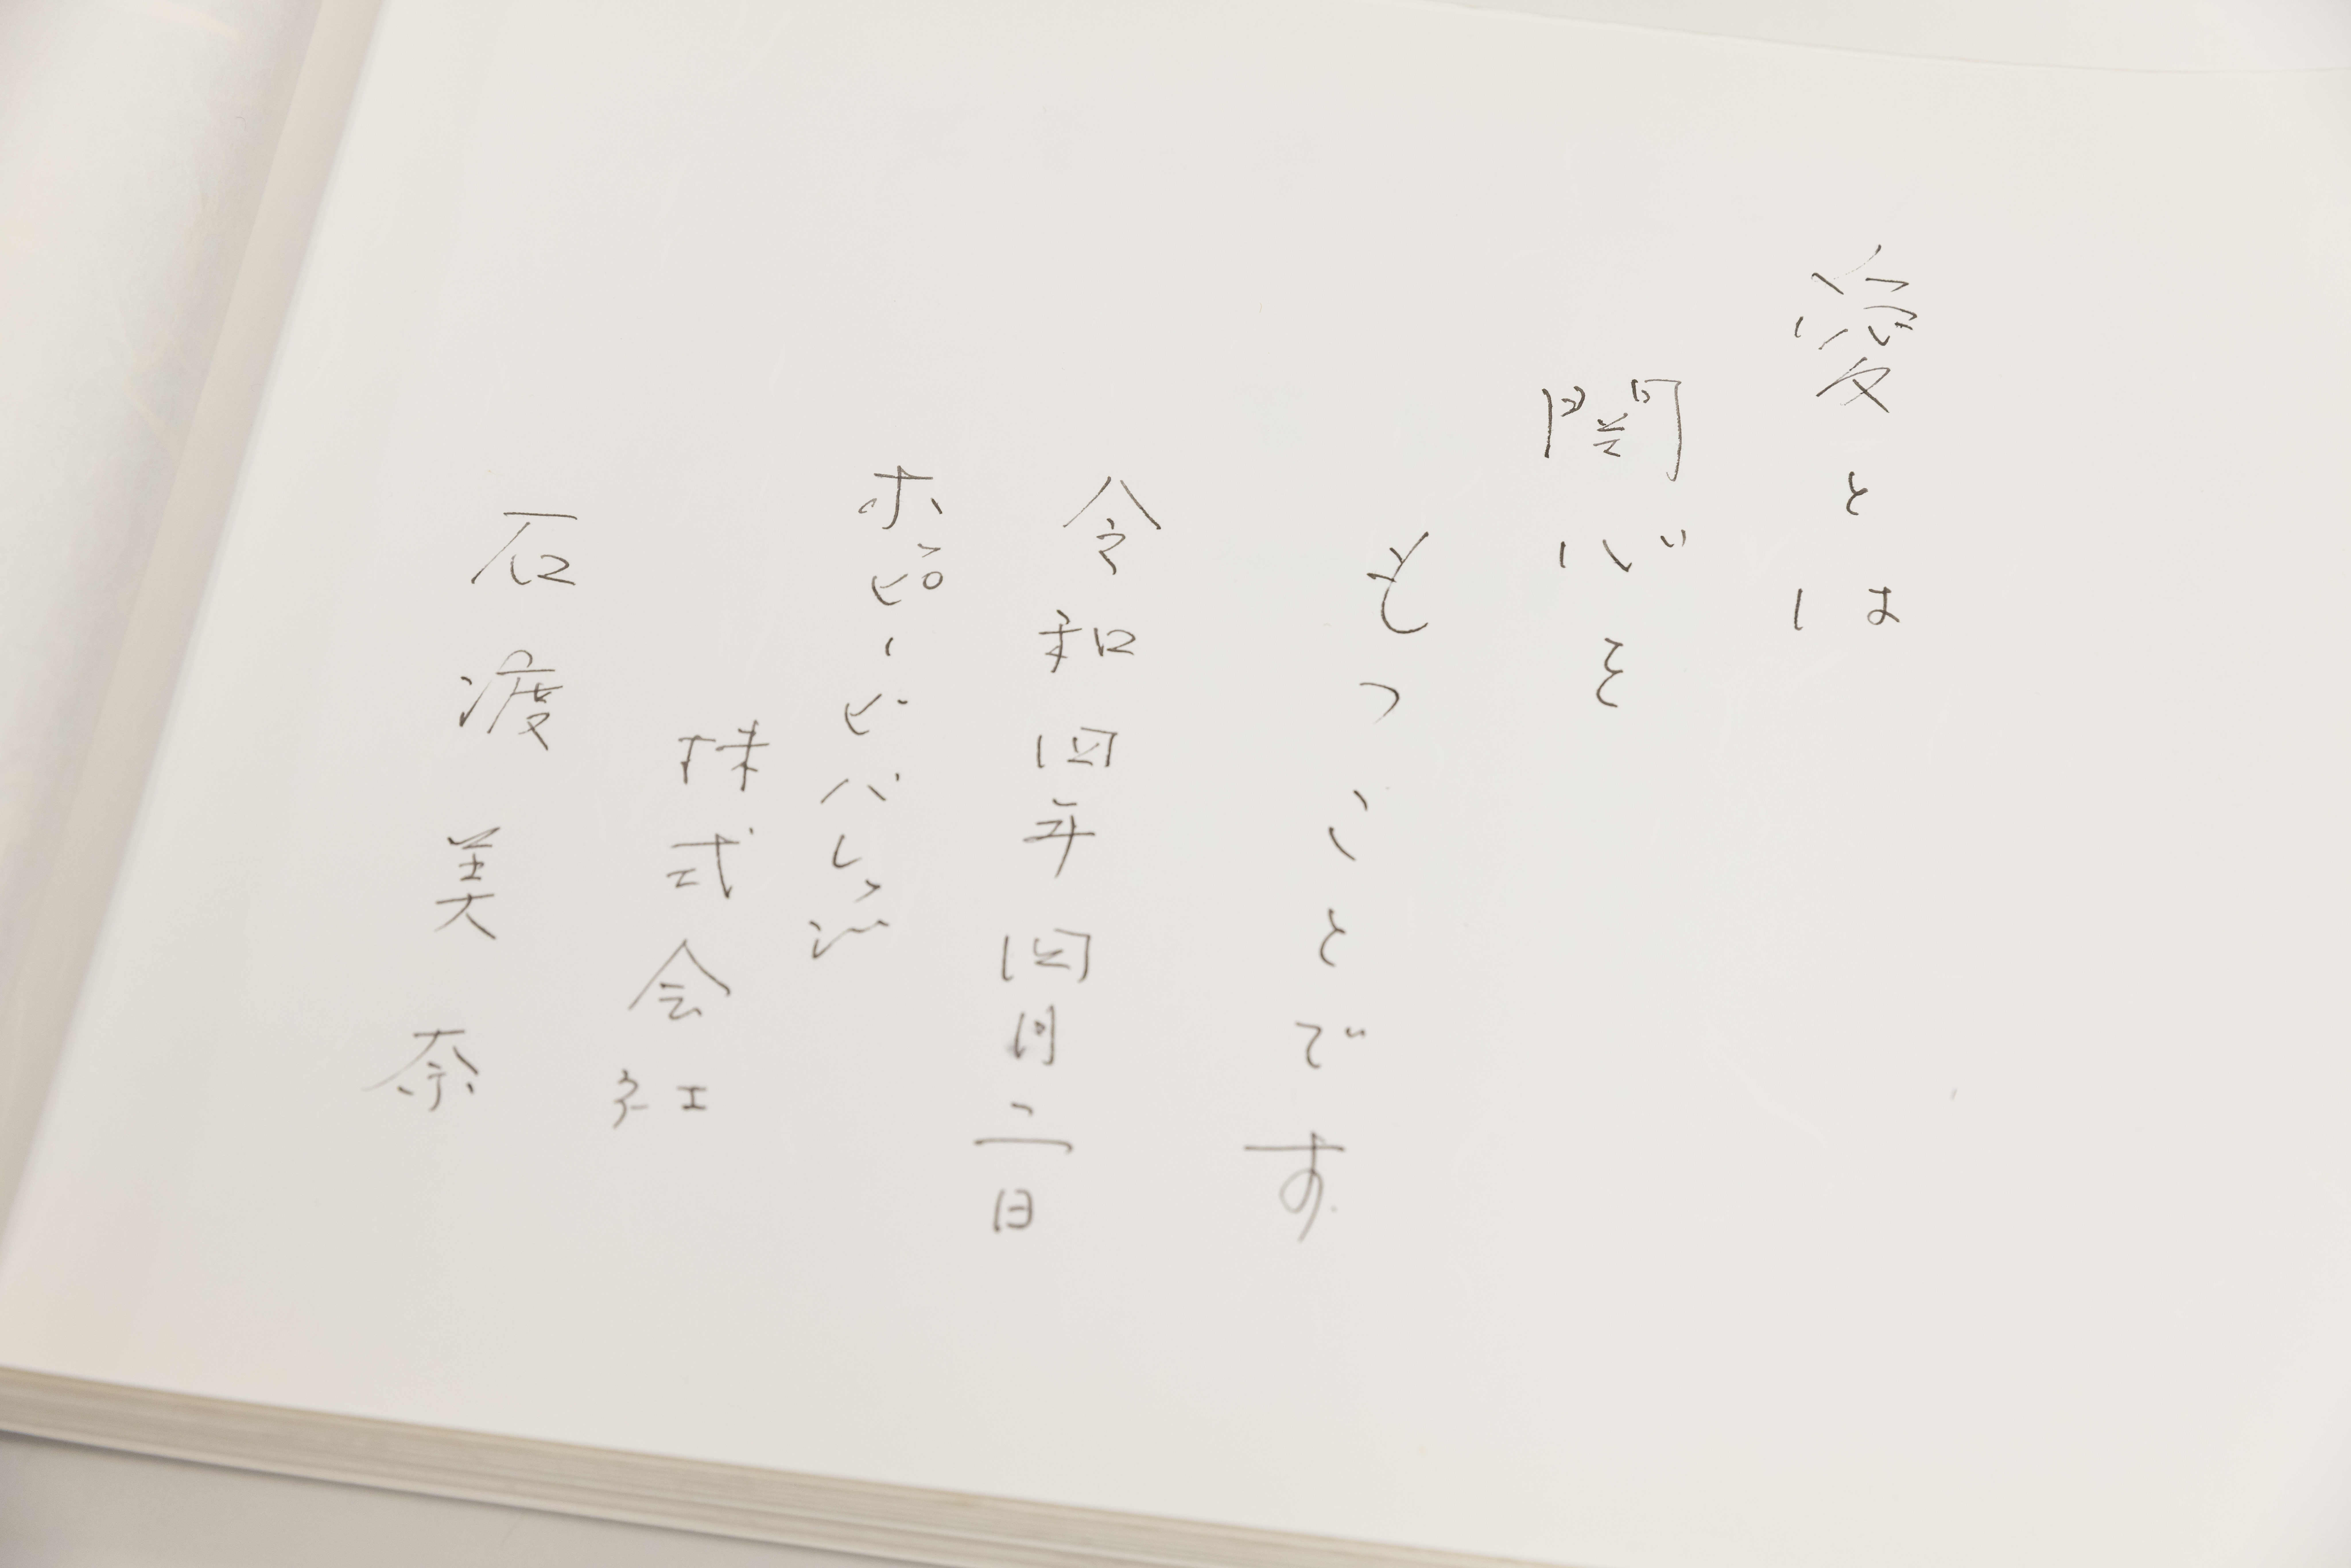 愛とは
関心を
もつことです
令和四年四月二日
ホッピービバレッジ
株式会社
石渡美奈